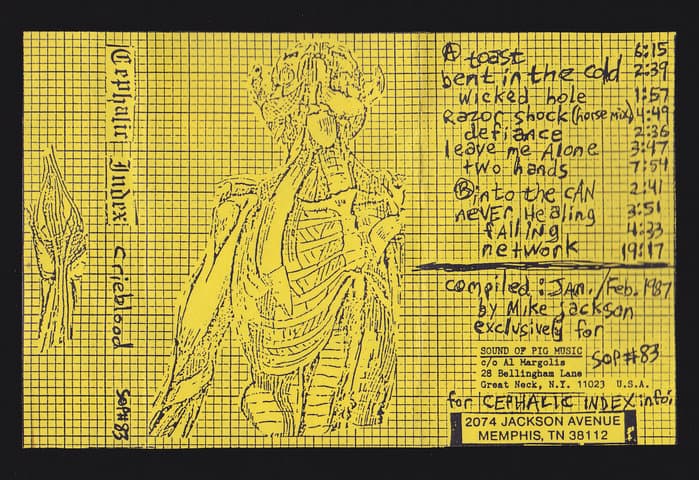 Cephalic Index: crieblood SOP#83
Ⓐ toast 6:15
bent in the cold 2:39
wicked hole 1:57
Razor shock (horse mix) 4:49
defiance 2:36
leave me Alone 3:47
two hands 7:54
Ⓑ into the CAN 2:41
never Healing 3:51
fAlling 4:33
network 19:17
compiled: JAN./Feb. 1987
by Mike Jackson
exclusively for
SOUND OF PIG MUSIC
c/o Al Margolis SOP#83
28 Bellingham Lane
Great Neck, N.Y. 11023 U.S.A.
for CEPHALIC INDEX info:
2074 JACKSON AVENUE
MEMPHIS, TN 38112